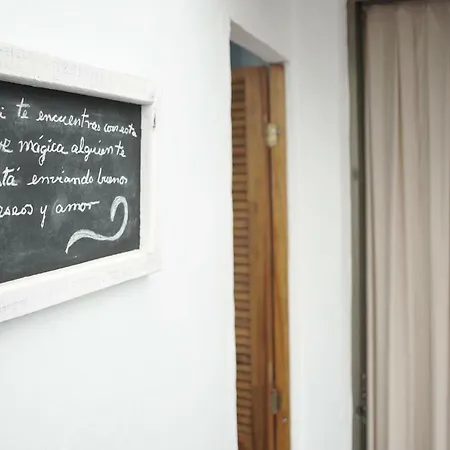 i te encuentras con esta
z mágica alguien te
stá enviando buenos
eseos y amor